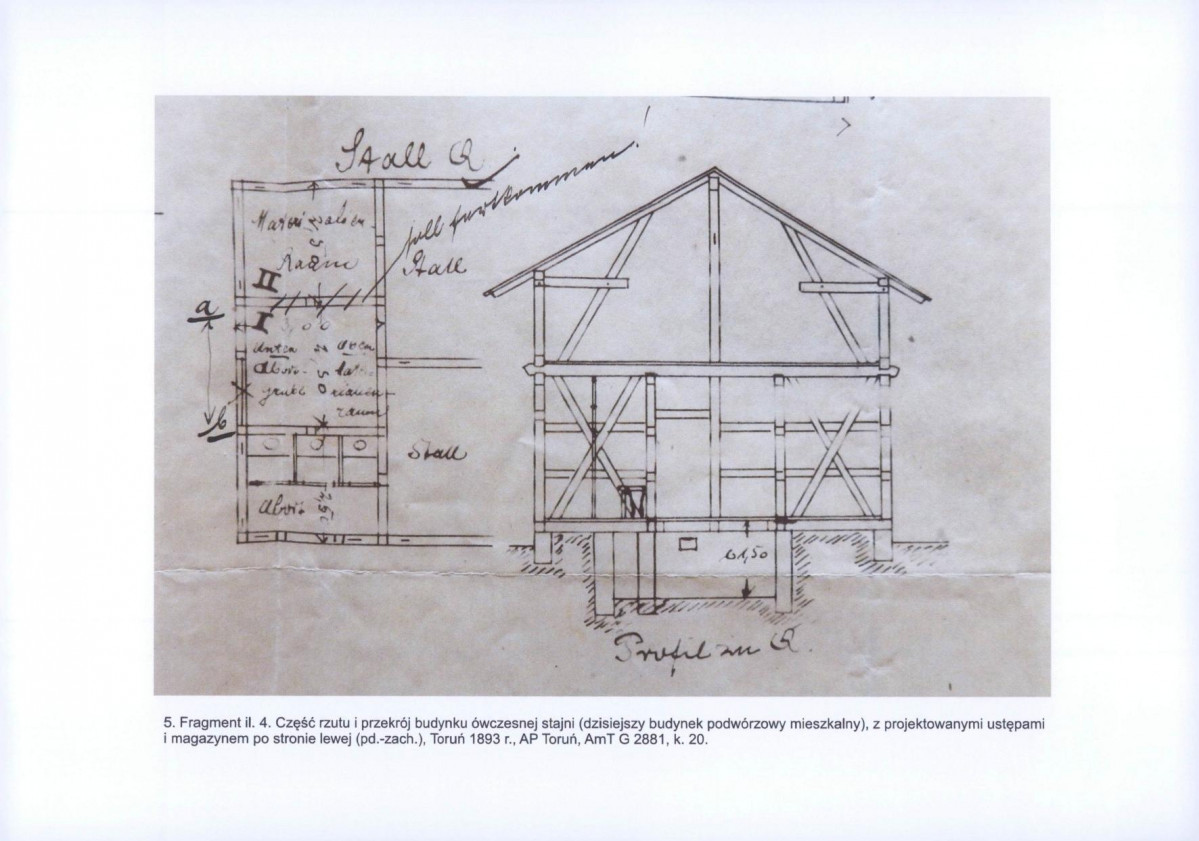 Stall Q
soll fortkommen!
Stall
II
a
I
3,00
Abort-
grube
raum
b
Stall
Abort
1,50
Profil zu Q.
5. Fragment il. 4. Część rzutu i przekrój budynku ówczesnej stajni (dzisiejszy budynek podwórzowy mieszkalny), z projektowanymi ustępami
i magazynem po stronie lewej (pd.-zach.), Toruń 1893 r., AP Toruń, AmT G 2881, k. 20.